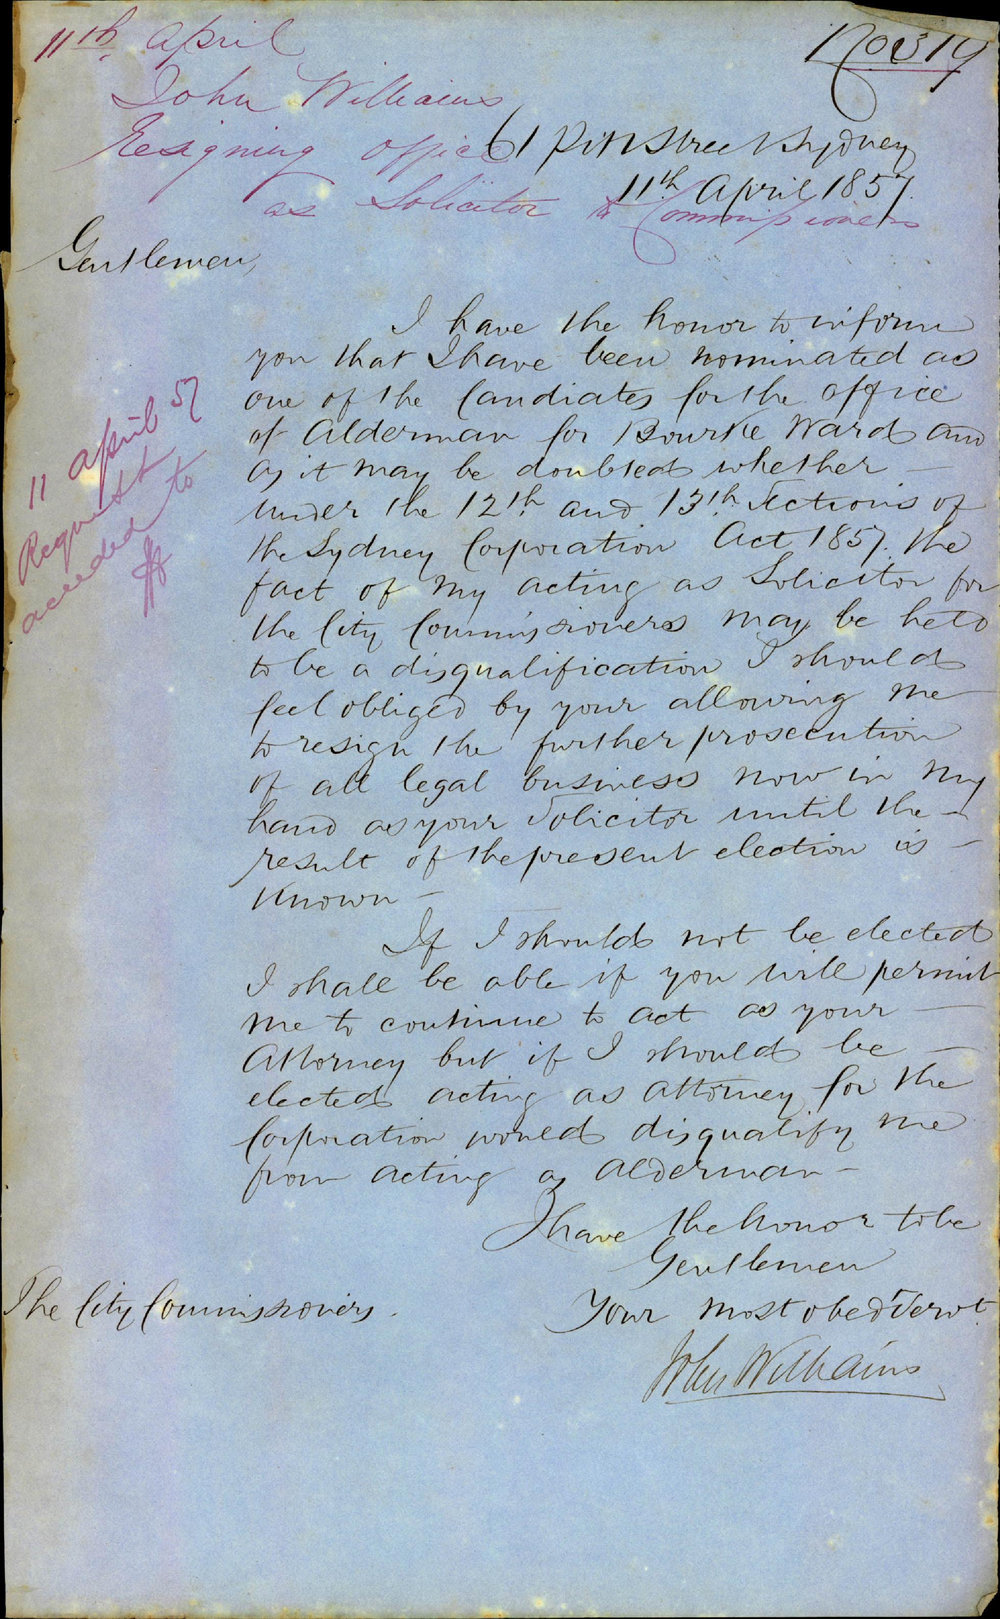 11th. April
John Williams
Resigning office
as Solicitor to Commissioners
No 319
61 Pitt Street Sydney
11th April 1857.
Gentlemen,
I have the honor to inform
you that I have been nominated as
one of the Candiates for the office
of Alderman for Bourke Ward and
as it may be doubted whether —
under the 12th. and 13th. Sections of
the Sydney Corporation Act 1857. the
fact of my acting as Solicitor for
the City Commissioners may be held
to be a disqualification I should
feel obliged by your allowing me
to resign the further prosecution
of all legal business now in my
hand as your Solicitor until the —
result of the present election is —
known —
If I should not be elected
I shall be able if you will permit
me to continue to act as your —
Attorney but if I should be —
elected acting as Attorney for the
Corporation would disqualify me
from acting as Alderman —
I have the honor to be
Gentlemen
Your most obed Servt.
John Williams
The City Commissioners.
11 April 57
Request
acceded to